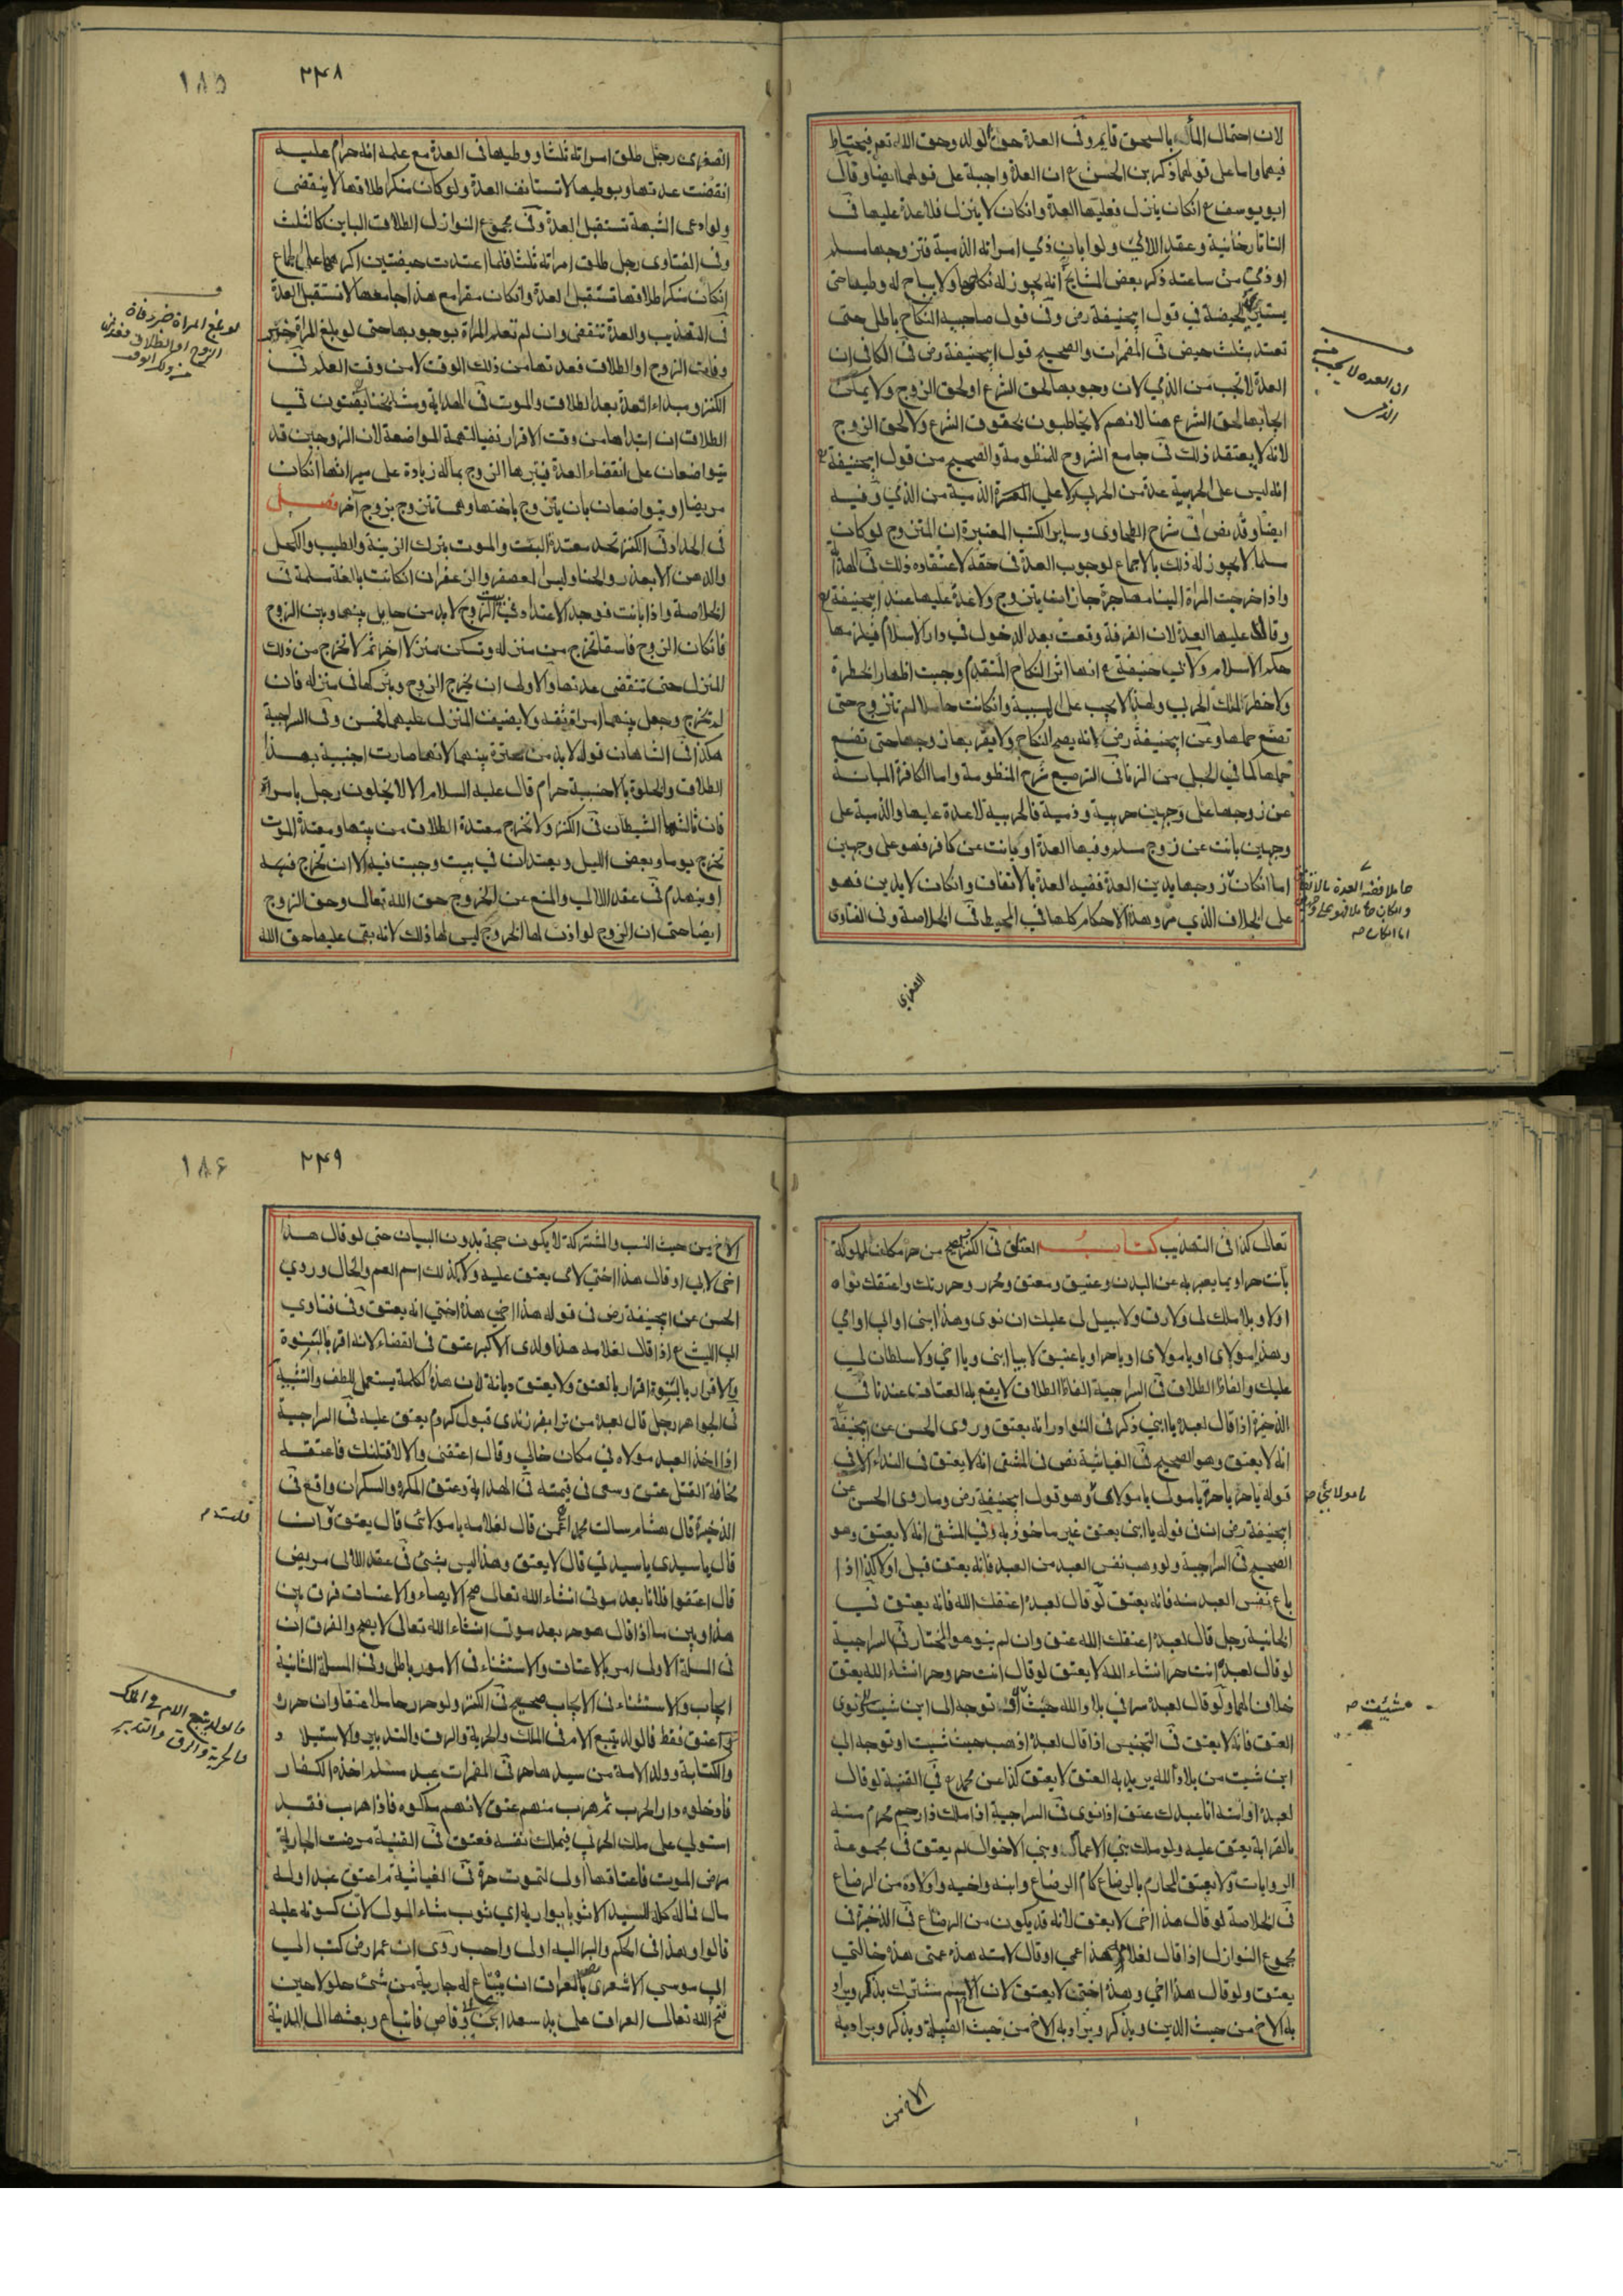 لان احتمال المأله بالسحق قايم وفى العدة حق لولد وحق الله تعم فيحتاط
فيها واما على قولهما ذكر بن الحسن ع ان العدة واجبة على قولهما ايضا وقال
ابو يوسف ع ان كان ينزل فعليها العدة وان كان لا ينزل فلا عدة عليها فى
التاتارخانية وعقد اللالئ ولو ابان ذمي امراته الذمية فتزوجها مسلم
او ذمي من ساعته ذكر بعض المشايخ انه يجوز له نكاحها ولا يباح له وطيها حتى
يستبرئ بحيضة في قول ابيحنيفة رض وفى قول صاحبيه النكاح باطل حتى
تعتد بثلث حيض فى المضمرات والصحيح قول ابيحنيفة رض فى الكافى ان
العدة لا تجب من الذمي لان وجوبها لحق الشرع او لحق الزوج ولا يمكن
ايجابها لحق الشرع هنا لانهم لا يخاطبون بحقوق الشرع ولا لحق الزوج
لانه لا يعتقد ذلك فى جامع الشروح للمنظومة والصحيح من قول ابيحنيفة ع
انه ليس على الحربية عدة من الحربي ولا على الذمية من الذمي وفيه
ايضا وقد نص فى شرح الطحاوى وساير الكتب المعتبرة ان المتزوج لو كان
مسلما لا يجوز له ذلك بالاجماع لوجوب العدة فى حقه لاعتقاده ذلك فى الهداية
واذا خرجت المراة الينا مهاجرة جاز ان يتزوج ولا عدة عليها عند ابيحنيفة ع
وقالا عليها العدة لان الفرقة وقعت بعد الدخول فى دار الاسلام فيلزمها
حكم الاسلام ولابي حنيفة ع انها اثر النكاح المتقدم وجبت اظهارا لخطره
ولا خطر لملك الحربي ولهذا لا يجب على المسبية وان كانت حاملا لم تتزوج حتى
تضع حملها وعن ابيحنيفة رض انه يصح النكاح ولا يقربها زوجها حتى تضع
حملها كما في الحبلى من الزنا فى الترصيع شرح المنظومة واما الكافرة المبانة
عن زوجها على وجهين حربية وذمية فالحربية لا عدة عليها والذمية على
وجهين بانت عن زوج مسلم وفيها العدة او بانت عن كافر فهو على وجهين
اما ان كان زوجها يدين العدة ففيه العدة بالاتفاق وان كان لا يدين فهو
على الخلاف الذي مر وهذا الاحكام كلها في المحيط فى الخلاصة وفى الفتاوى
ان العدة لا يجب من
الذمى
حاملا ففيه العدة بالاتفاق
وان كان حاملا فهو على
اما ان كان صح
الصغرى
١٨٥
٢٤٨
الصغرى رجل طلق امراته ثلثا ووطيها فى العدة مع علمه انه حرام عليه
انقضت عدتها وبوطيها لا تستانف العدة ولو كان منكرا طلاقها لا ينقضى
ولو ادعى الشبهة تستقبل العدة وفى مجموع النوازل الطلاق الباين كالثلث
وفى الفتاوى رجل طلق امراته ثلثا فلما اعتدت حيضتين اكرهها على الجماع
ان كان منكرا طلاقها تستقبل العدة وان كان مقرا مع هذا جامعها لا تستقبل العدة
فى التهذيب والعدة تنقضى وان لم تعلم المراة بوجوبها حتى لو بلغ المراة خبر
وفات الزوج او الطلاق فعدتها من ذلك الوقت لا من وقت العلم فى
الكنز ومبداء العدة بعد الطلاق والموت فى الهداية ومشايخنا يفتون في
الطلاق ان ابتداها من وقت الاقرار نفيا لتهمة المواضعة لان الزوجين قد
يتواضعان على انقضاء العدة فيبرها الزوج بماله زيادة على ميراثها ان كان
مريضا او يتواضعان بان يتزوج باختها وهى تتزوج بزوج آخر فصل
فى الحداد فى الكنز تحد معتدة البت والموت بترك الزينة والطيب والكحل
والدهن الا بعذر والحنا ولبس المعصفر والزعفران ان كانت بالغة مسلمة فى
الخلاصة واذا بانت فوجد الاعتداد فى بيت الزوج لا بد من حايل بينها وبين الزوج
فان كان الزوج فاسقا تخرج من منزله وتسكن منزلا آخر ثم لا تخرج من ذلك
المنزل حتى تنقضى عدتها والاولى ان يخرج الزوج ويتركها فى منزله فان
لم يخرج وجعل بينهما امراة ثقة ولا يضيق المنزل عليهما فحسن وفى السراجية
هكذا فى الشاهان قوله لا بد من سترة بينهما لانها صارت اجنبية بهذا
الطلاق والخلوة بالاجنبية حرام قال عليه السلام الا لا يخلون رجل بامراة
فان ثالثهما الشيطان فى الكنز ولا تخرج معتدة الطلاق من بيتها ومعتدة الموت
تخرج يوما وبعض الليل ويعتدان في بيت وجبت فيه الا ان تخرج فيه
او ينهدم فى عقد اللالي والمنع عن الخروج حق الله تعالى وحق الزوج
ايضا حتى ان الزوج لو اذن لها الخروج ليس لها ذلك لانه بقى عليها حق الله
لو بلغ المراة خبر وفاة
الزوج او الطلاق فعدتها
من ذلك الوقت
تعالى كذا فى التهذيب كتاب العتق فى الكنز يصح من حر مكلف لمملوكه
بانت حر او بما يعبر به عن البدن وعتيق ومعتق ومحرر وحررتك واعتقتك نواه
اولا وبلا ملك لى ولا رق ولا سبيل لى عليك ان نوى وهذا ابنى او ابي او امي
وهذا مولاى او يا مولاى او يا حر او يا عتيق لا بيا ابنى ويا اخي ولا سلطان لي
عليك والفاظ الطلاق فى السراجية الفاظ الطلاق لا يقع به العتاق عندنا في
الذخيرة اذا قال لعبده يا ابني ذكر فى النوادر انه يعتق وروى الحسن عن ابيحنيفة
انه لا يعتق وهو الصحيح فى الغياثية نص فى المنتقى انه لا يعتق فى النداء الا فى
قوله يا حر يا حرة يا مولى يا مولاي وهو قول ابيحنيفة رض وما روى الحسن عن
ابيحنيفة رض ان فى قوله يا ابنى يعتق غير ماخوذ به وفى المنتقى انه لا يعتق وهو
الصحيح فى السراجية ولو وهب نفس العبد من العبد فانه يعتق قبل اولا كذا اذا
باع نفس العبد منه فانه يعتق لو قال لعبده اعتقك الله فانه يعتق فى
الخانية رجل قال لعبده اعتقك الله عتق وان لم ينو هو المختار فى السراجية
لو قال لعبده انت حر انشاء الله لا يعتق لو قال انت حر وحر انشاء الله يعتق
خلافا لهما ولو قال لعبده سر في بلاد الله حيث او توجه الى اين شيت ونوى
العتق فانه لا يعتق فى التجنيس اذا قال لعبده اذهب حيث شيت او توجه الى
اين شيت من بلاد الله يريد به العتق لا يعتق كذا عن محمد ع في القنية لو قال
لعبده او امته انا عبدك عتق اذا نوى فى السراجية اذا ملك ذا رحم محرم منه
بالقرابة يعتق عليه ولو ملك بني الاعمام وبني الاخوال لم يعتق فى مجموعة
الروايات ولا يعتق المحارم بالرضاع كام الرضاع وابنه واخيه واولاده من الرضاع
فى الخلاصة لو قال هذا اخى لا يعتق لانه قد يكون من الرضاع فى الذخيرة فى
مجموع النوازل اذا قال لغلامه هذا عمي او قال لامته هذه عمتى هذه خالتي
يعتق ولو قال هذا اخي وهذه اختى لا يعتق لان الاسم مشترك يذكر ويراد
به الاخ من حيث الدين ويذكر ويراد به الاخ من حيث القبيلة ويذكر ويراد به
يا مولائى صح
شيئت صح
الاخ من
١٨٦
٢٤٩
الاخ من حيث النسب والمشترك لا يكون حجة بدون البيان حتى لو قال هذا
اخى لابي او قال هذا اختي لامى يعتق عليه ولا كذلك اسم العم والخال وروي
الحسن عن ابيحنيفة رض فى قوله هذا اخي هذه اختي انه يعتق وفى فتاوي
ابي الليث ع اذا قال لغلامه هذا ولدى الاكبر عتق فى القضاء لانه اقر بالبنوة
والاقرار بالبنوة اقرار بالعتق ولا يعتق ديانة لان هذا الكلمة يستعمل للطف والتشبيه
فى الجواهر رجل قال لعبده من ترا بفرزندى قبول كردم يعتق عليه فى السراجية
اذا اخذ العبد مولاه فى مكان خالي وقال اعتقنى والا لاقتلنك فاعتقه
مخافة القتل عتق وسعى فى قيمته فى الهداية وعتق المكره والسكران واقع فى
الذخيرة قال هشام سالت محمدا عمن قال لغلامه يا مولائى قال يعتق وان
قال يا سيدى يا سيدتي قال لا يعتق وهذا ليس بشئ فى عقد اللالى مريض
قال اعتقوا فلانا بعد موتى انشاء الله تعالى صح الايصاء والاعتاق فرق بين
هذا وبين ما اذا قال هو حر بعد موتى انشاء الله تعالى لا يصح والفرق ان
فى المسلة الاولى امر بالاعتاق والاستثناء فى الامور باطل وفى المسلة الثانية
ايجاب والاستثناء فى الايجاب صحيح فى الكنز ولو حرر حاملا عتقا وان حرره
عتق فقط فالولد يتبع الام فى الملك والحرية والرق والتدبير والاستيلاد
والكتابة وولد الامة من سيدها حر فى المضمرات عبد مسلم اخذه الكفار
فادخلوه دار الحرب ثم هرب منهم عتق لانهم ملكوه فاذا هرب فقد
استولى على ملك الحربي فيملك نفسه فعتق فى القنية مرضت الجارية
مرض الموت فاعتاقها اولى لتموت حرة فى الغياثية من اعتق عبدا وله
مال فماله كله للسيد الا ثوبا يواريه اي ثوب شاء المولى لان كسوته عليه
قالوا وهذا فى الحكم والبر اليه اولى واحب روى ان عمر رض كتب الى
ابى موسى الاشعرى بالعراق ان يبتاع له جارية من سبى جلولا حين
فتح الله تعالى العراق على يد سعد ابن وقاص فابتاع وبعثها الى المدينة
فالولد يتبع الام فى الملك
والحرية والرق والتدبير